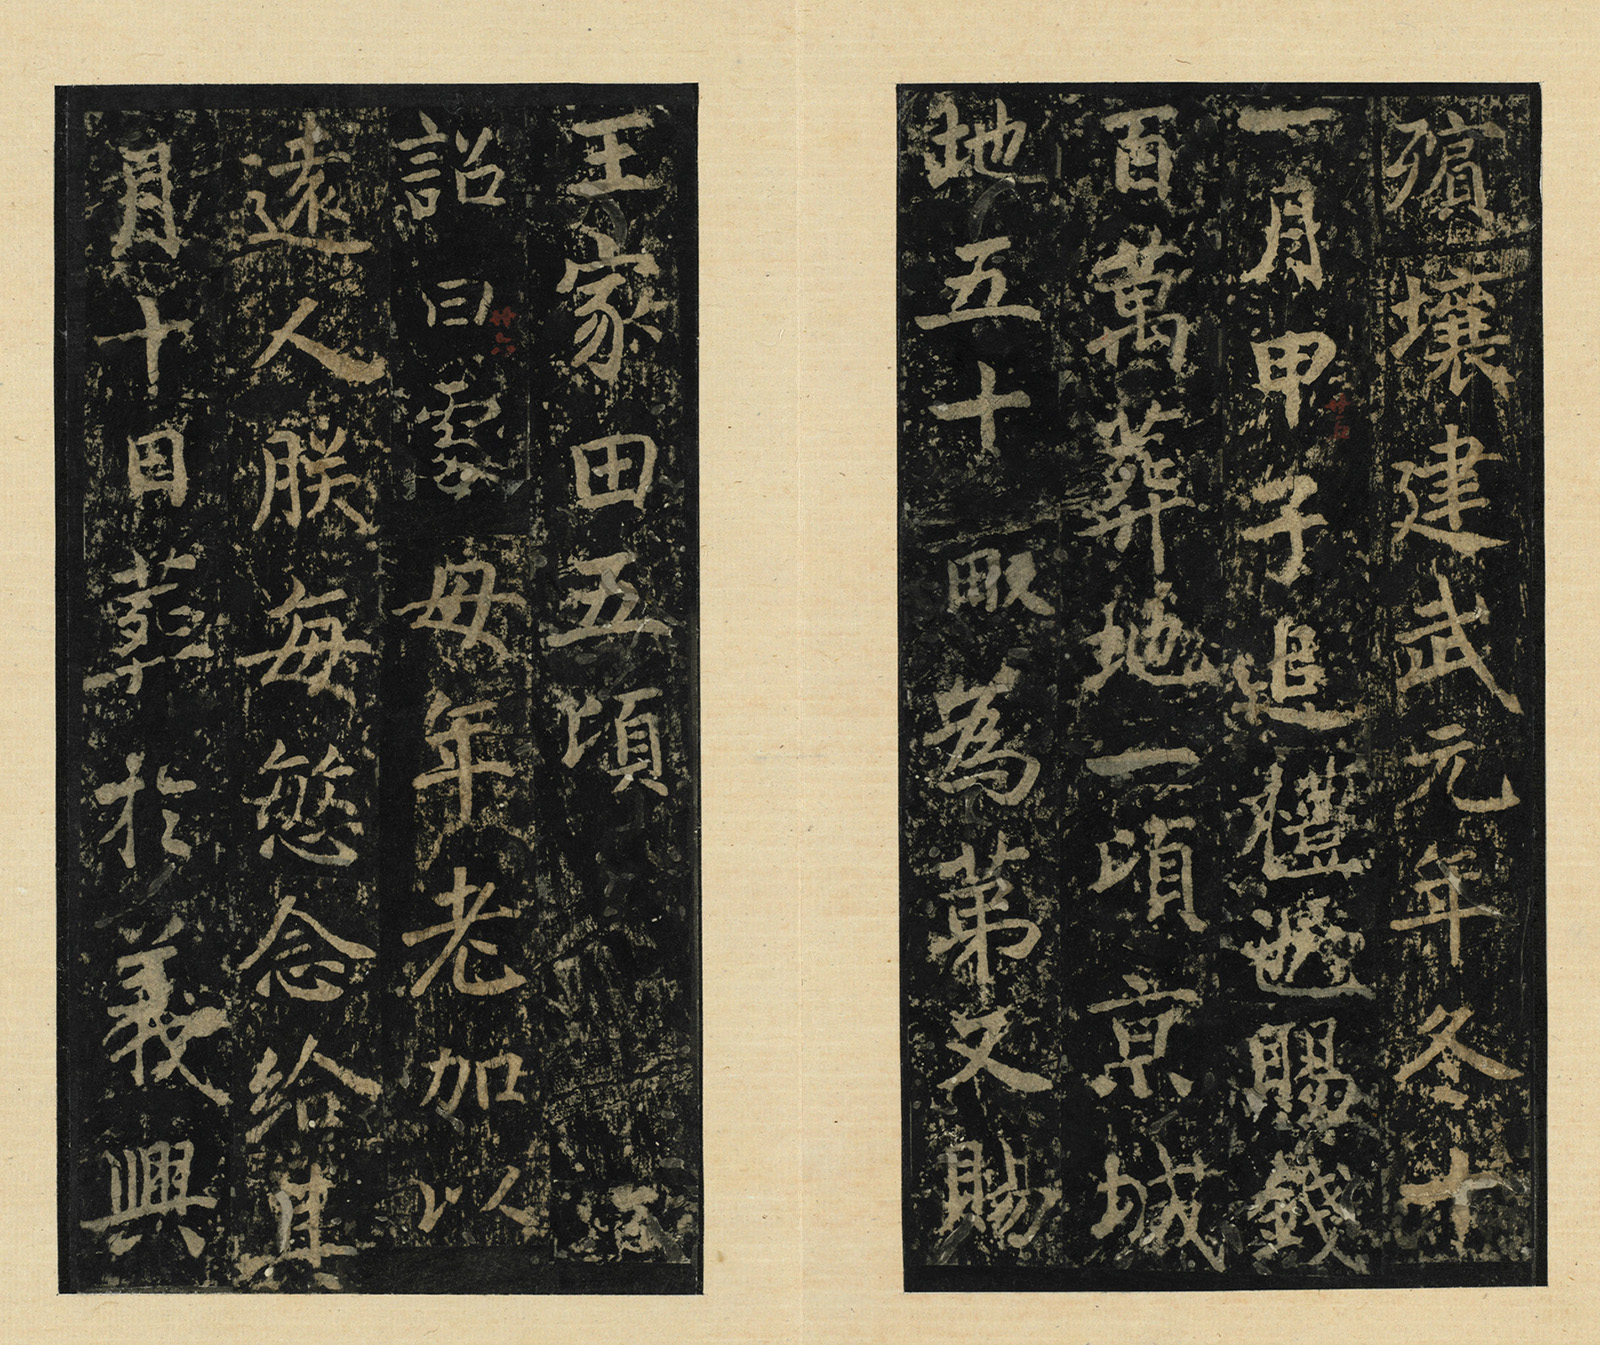 殯壤建武元年冬十
一月甲子追賜錢
百萬葬地一頃京城
地五十畝為第又賜
王家田五頃
詔曰處母年老加以
遠人朕每慜念給其
月十日葬於義興
廿五
廿六